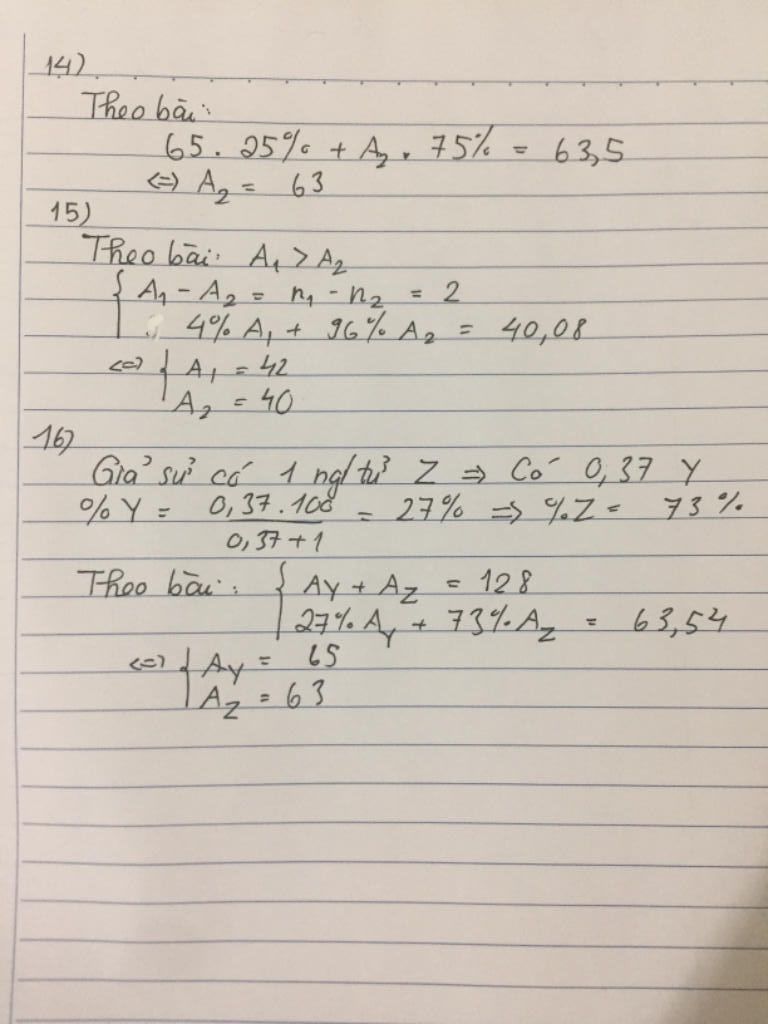 14)
Theo bài:
65 . 25% + A₂ . 75% = 63,5
<=> A₂ = 63
15)
Theo bài: A₁ > A₂
{ A₁ - A₂ = n₁ - n₂ = 2
4% A₁ + 96% A₂ = 40,08
<=> { A₁ = 42
A₂ = 40
16)
Giả sử có 1 ng/tử Z => Có 0,37 Y
% Y = 0,37.100 / 0,37+1 = 27% => %Z = 73 %
Theo bài: { AY + AZ = 128
27% AY + 73% AZ = 63,54
<=> { AY = 65
AZ = 63